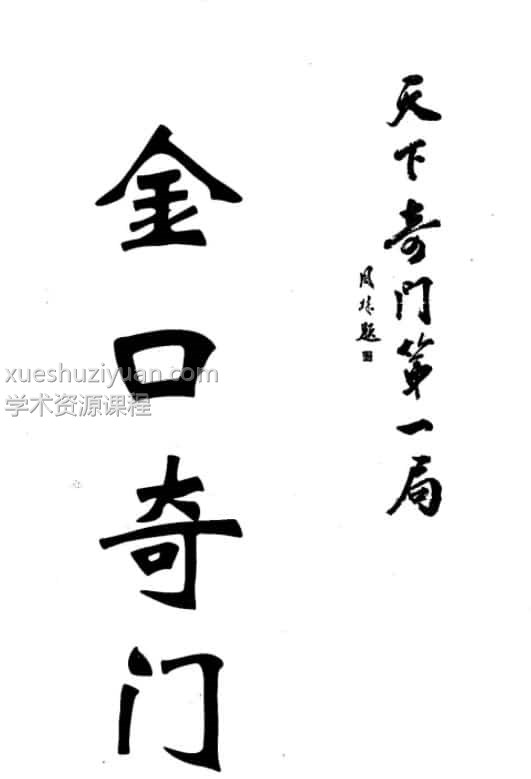 天下奇門第一局
題
金口奇门
xueshuziyuan.com
学术资源课程